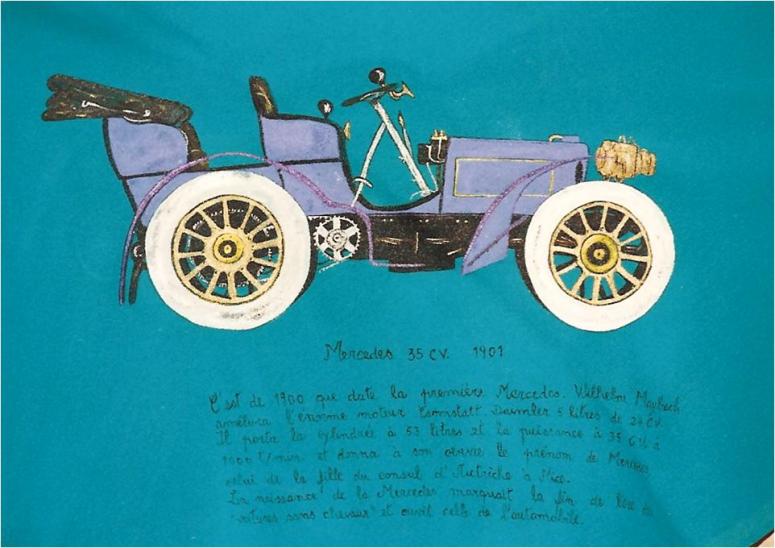 Mercedes 35 CV. 1901
C'est de 1900 que date la première Mercedes. Wilhelm Maybach
améliora l'énorme moteur Daimler 5 litres de 24 CV.
Il porta la cylindrée à 53 litres et la puissance à 35 CV à
1000 t/min. et donna à son œuvre le prénom de Mercedes
celui de la fille du consul d'Autriche à Nice.
La naissance de la Mercedes marquait la fin de l'ère des
"voitures sans chevaux" et ouvrit celle de l'automobile.